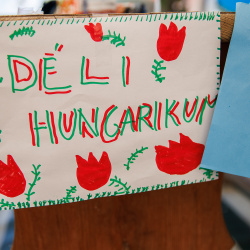 DÉLI
HUNGARIKUM